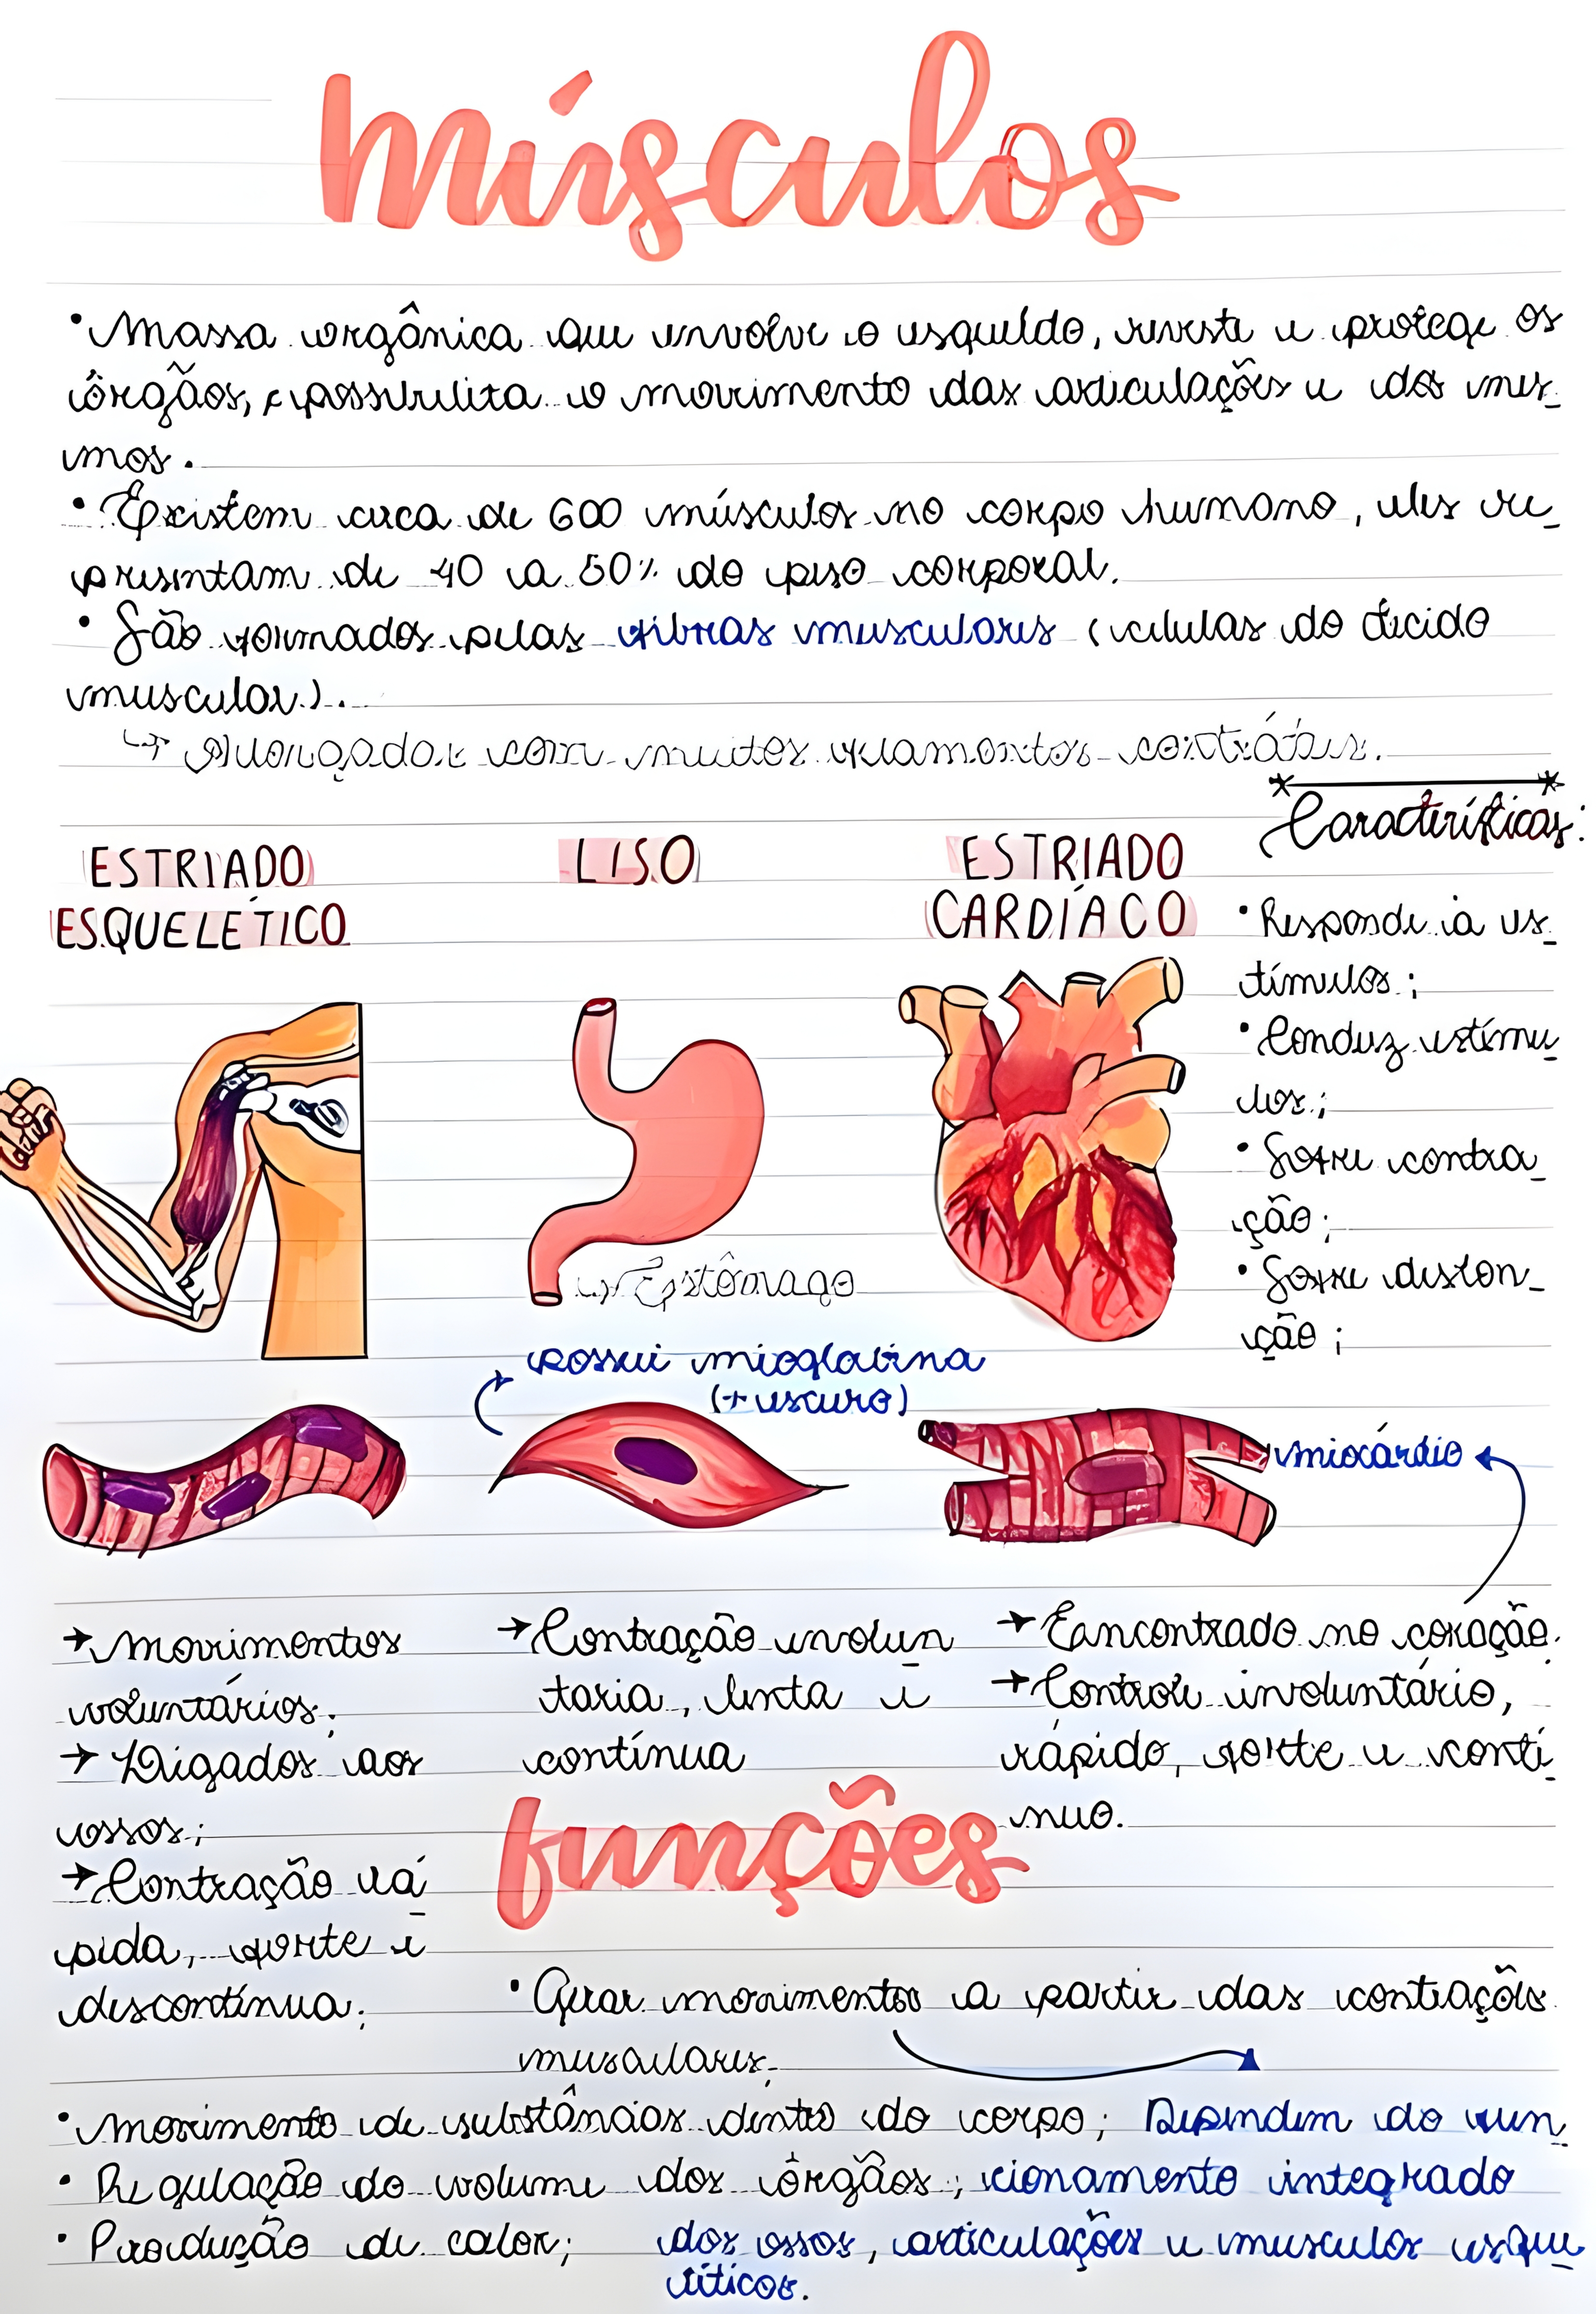 músculos
• Massa orgânica que envolve o esqueleto, reveste e protege os
órgãos, e possibilita o movimento das articulações e dos mes-
mos.
• Existem cerca de 600 músculos no corpo humano, eles re-
presentam de 40 a 50% do peso corporal.
• São formados pelas fibras musculares (células do tecido
muscular).
↳ Alongadas com muitos filamentos contráteis.
Características:
• Responde a es-
tímulos;
• Conduz estímu-
los;
• Sofre contra-
ção;
• Sofre disten-
ção;
ESTRIADO
ESQUELÉTICO
LISO
ESTRIADO
CARDÍACO
↳ Estômago
possui mioglobina
(+ escuro)
miocárdio
→ Movimentos
voluntários;
→ Ligados aos
ossos;
→ Contração rá-
pida, forte e
descontínua;
→ Contração involun-
taria, lenta e
contínua
→ Encontrado no coração;
→ Controle involuntário,
rápido, forte e contí-
nuo.
funções
• Gerar movimentos a partir das contrações
musculares;
• Movimento de substâncias dentro do corpo;
• Regulação do volume dos órgãos;
• Produção de calor;
Dependem do fun-
cionamento integrado
dos ossos, articulações e musculos esque-
léticos.